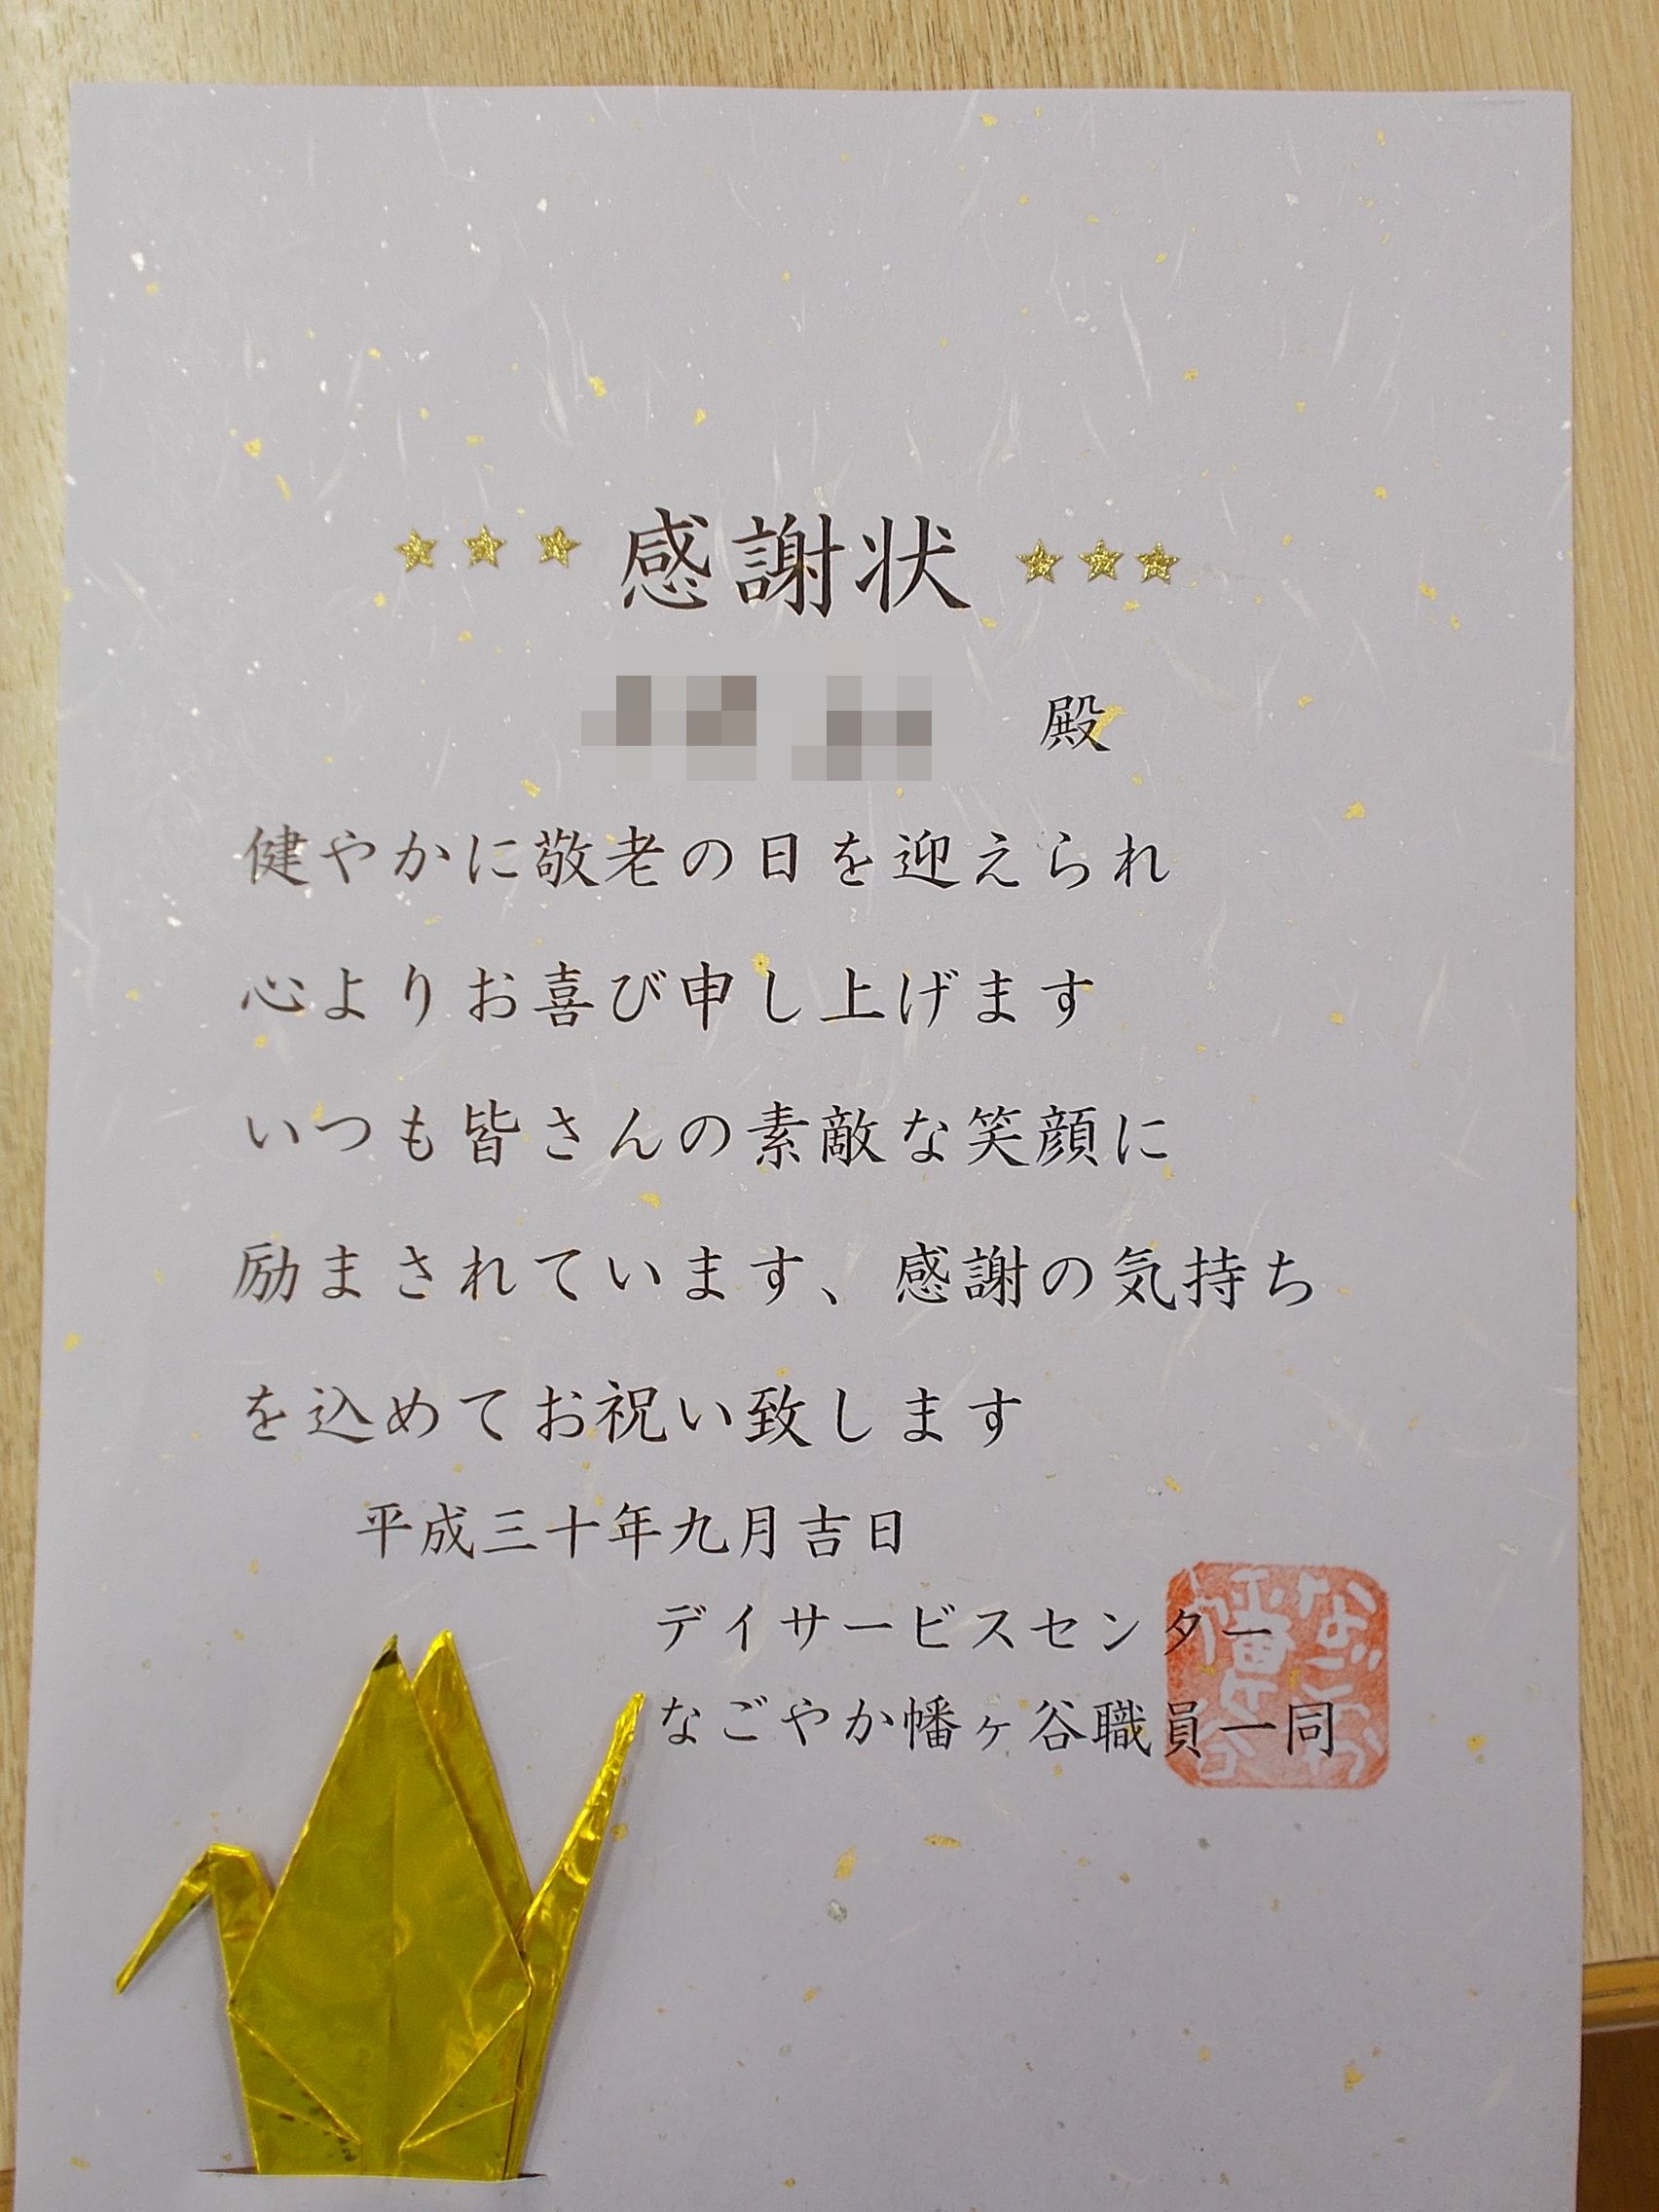 感謝状
殿
健やかに敬老の日を迎えられ
心よりお喜び申し上げます
いつも皆さんの素敵な笑顔に
励まされています、感謝の気持ち
を込めてお祝い致します
平成三十年九月吉日
デイサービスセンター
なごやか幡ヶ谷職員一同
なごやか
幡ヶ谷